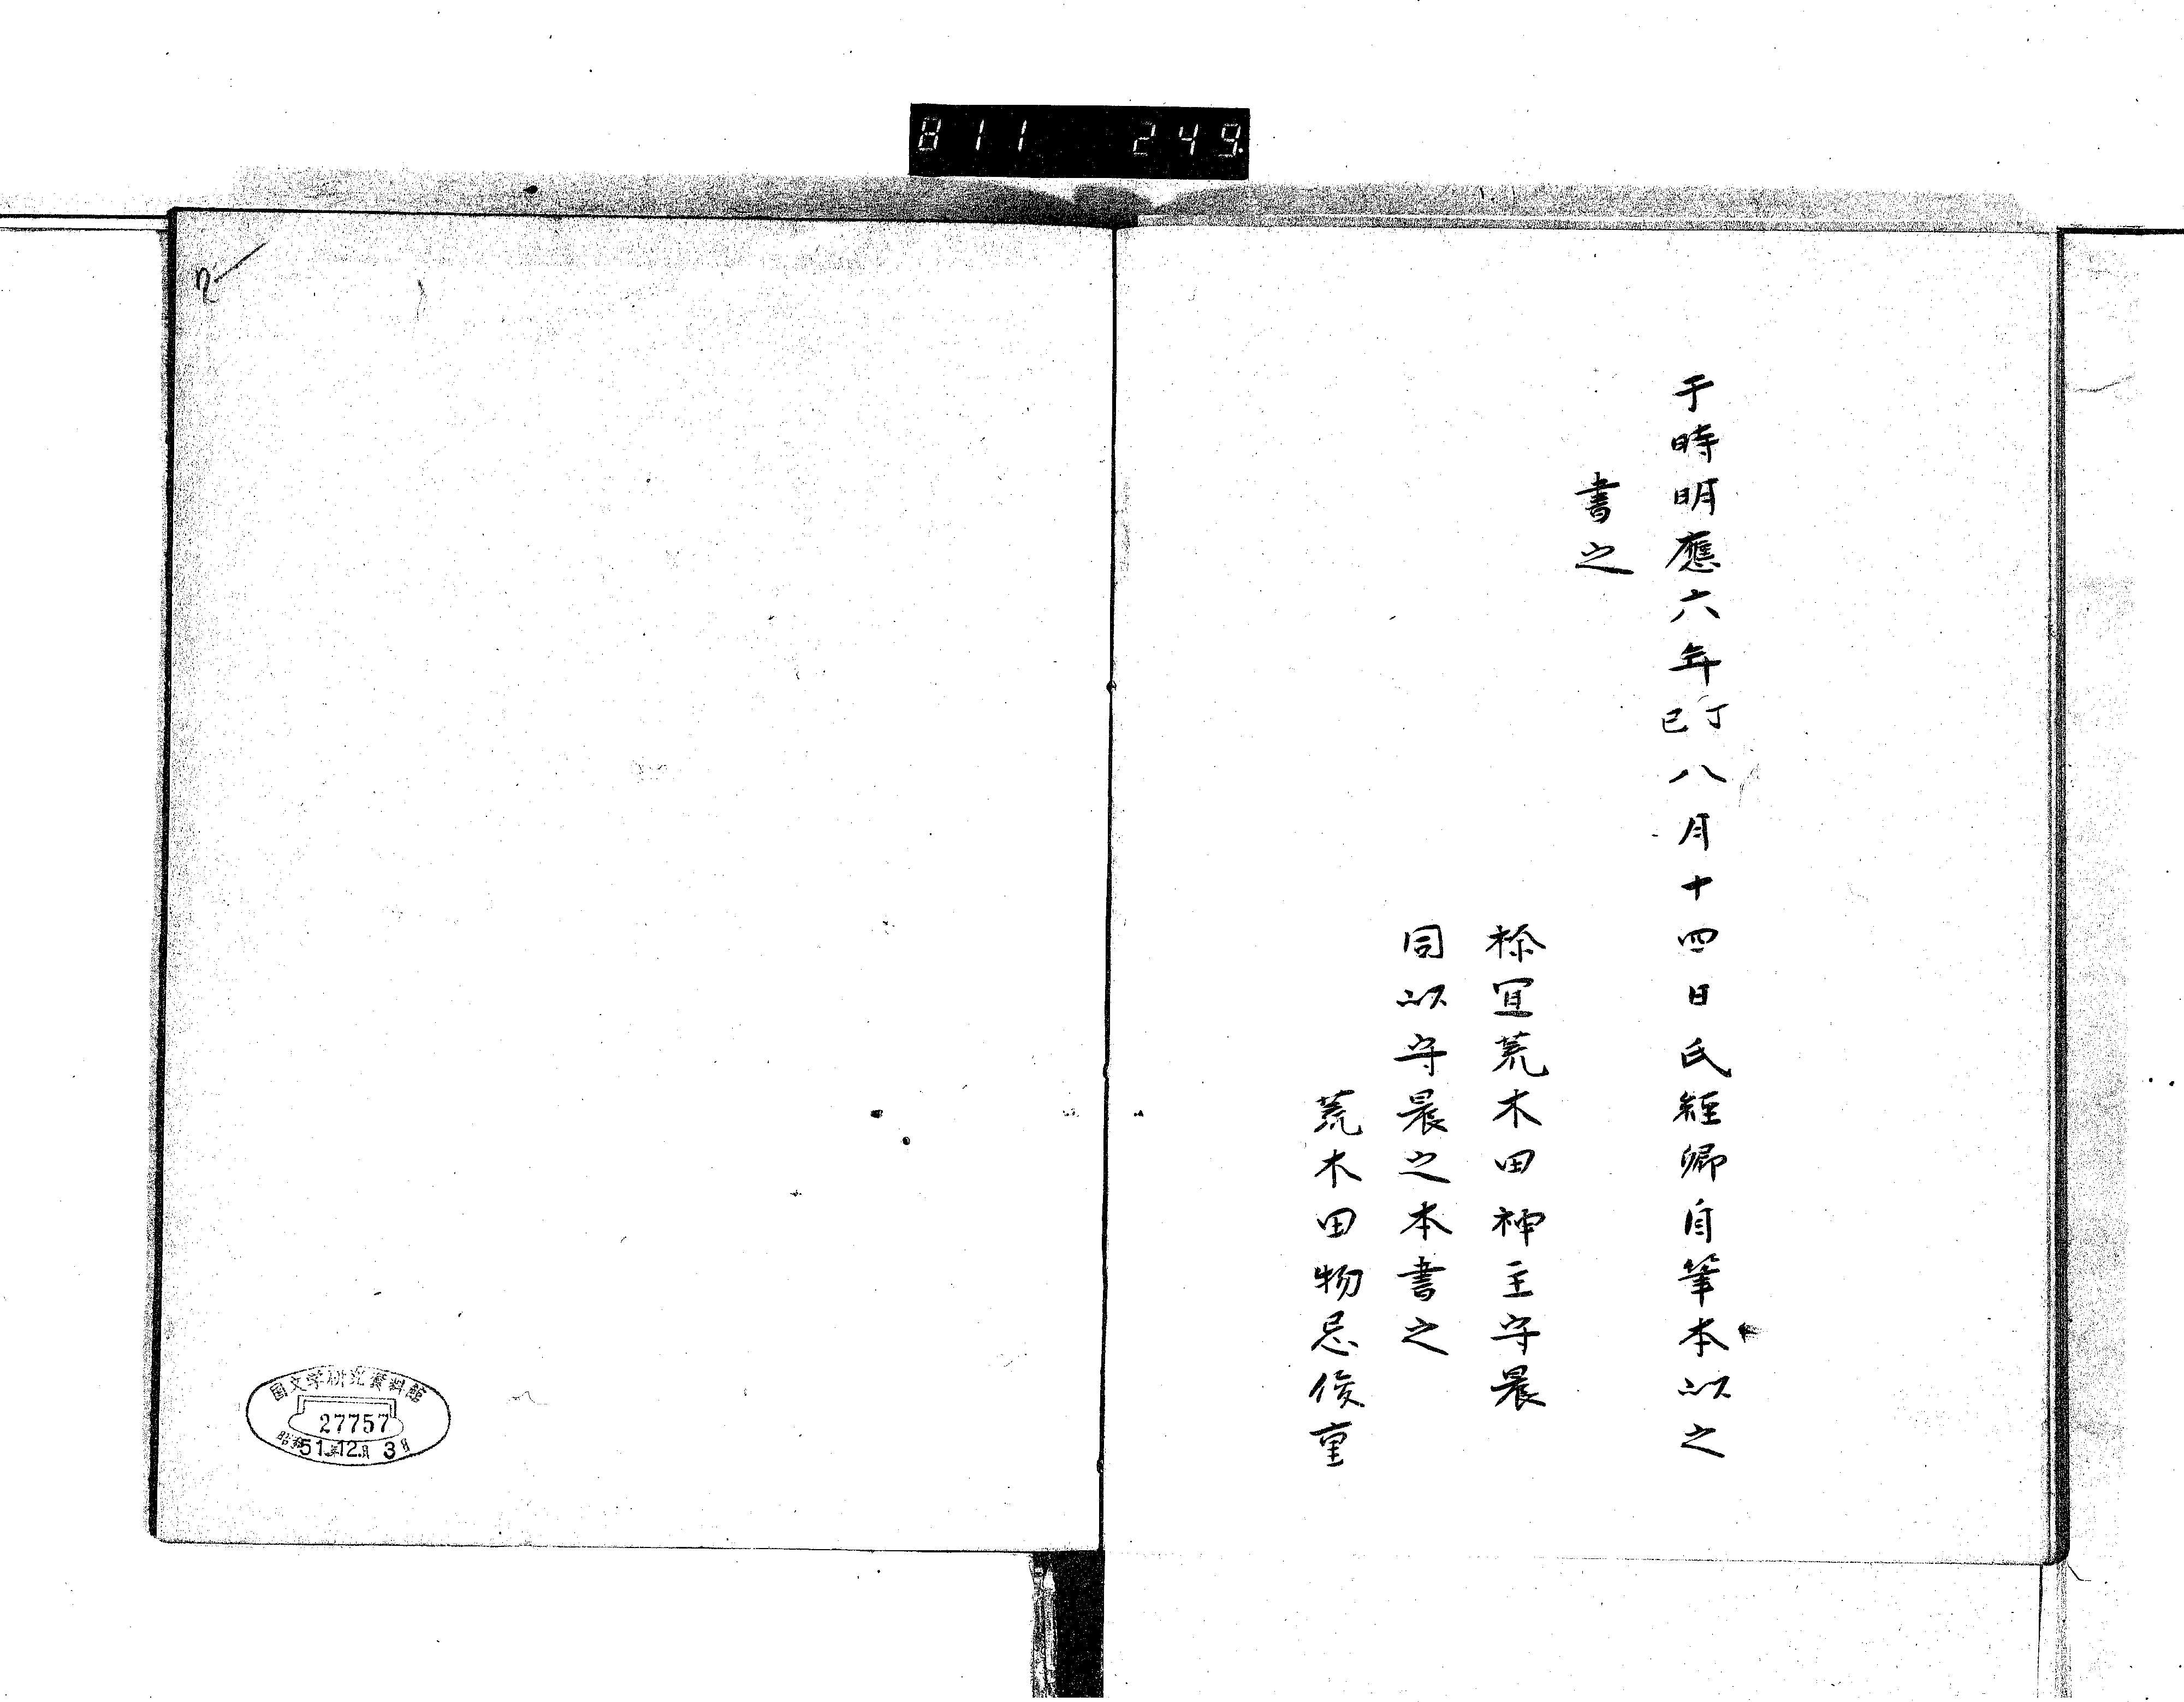 811 249
于時明應六年丁巳八月十四日氏經卿自筆本以之
書之
祢宜荒木田神主守晨
同以守晨之本書之
荒木田物忌俊重
国文学研究資料館
27757
昭和51年12月3日